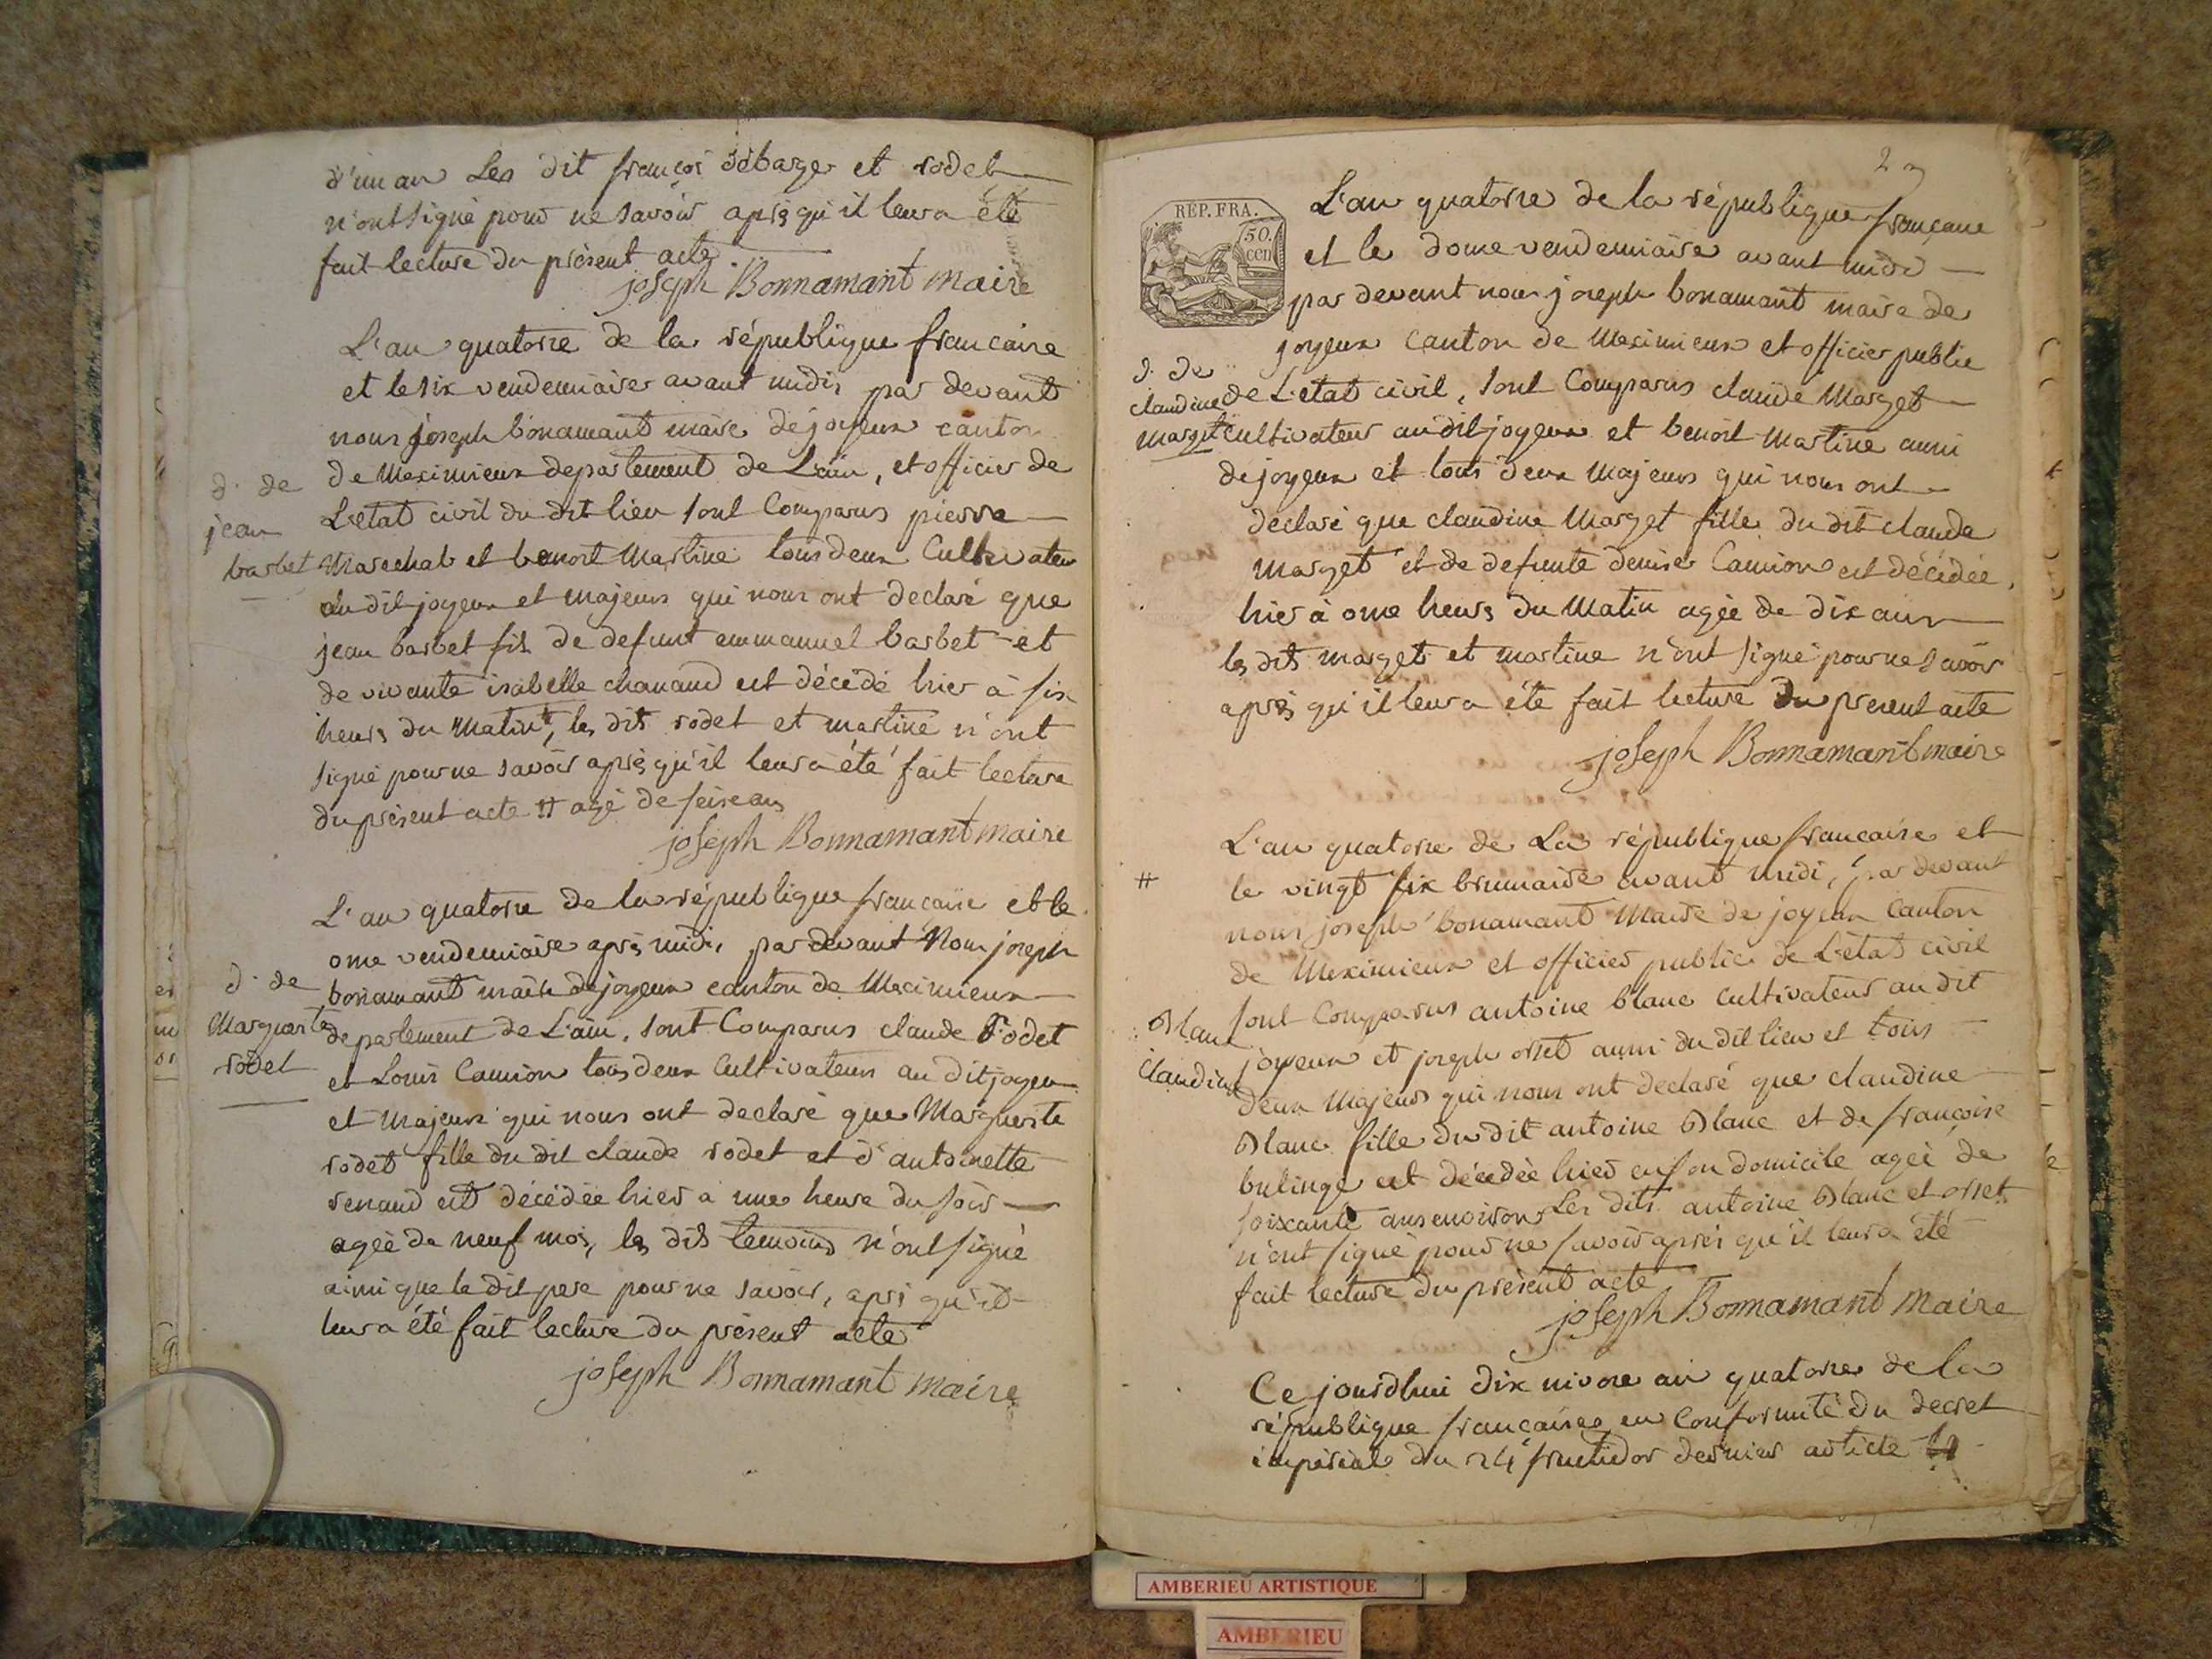 d'un an Les dit françoi débarge et rodet
n'ont signé pour ne savoir après qu'il leur a été
fait lecture du présent acte
joseph Bonnamant maire
L'an quatorze de la république francaise
et le six vendemiaire avant midi, par devant
nous joseph bonamant maire de joyeux canton
de Meximieux departement de L'ain, et officier de
L'etat civil du dit lieu sont Comparus pierre
d. de
jean
barbet
Marechal et benoit Martine tous deux Cultivateur
du dit joyeux et majeurs qui nous ont declaré que
jean barbet fils de defunt emmanuel barbet et
de vivante isabelle chanaud est décédé hier à six
heurs du Matin #, les dits rodet et martine n'ont
signé pour ne savoir après qu'il leur a été fait lecture
du présent acte # agé de seize ans
joseph Bonnamant maire
L'an quatorze de la république francaise et le
onze vendemiaire après midi, par devant Nous joseph
d. de
Marguerite
rodet
bonamant maire de joyeux canton de Meximieux
departement de L'ain, sont Comparus claude Rodet
et Louis Camion tous deux Cultivateurs au dit joyeux
et Majeurs qui nous ont declaré que Marguerite
rodet fille du dit claude rodet et d'antoinette
renaud est décédée hier a une heure du soir
agée de neuf mois, les dits temoins n'ont signé
ainsi que le dit pere pour ne savoir, après qu'il
leur a été fait lecture du présent acte
joseph Bonnamant maire
2
REP. FRA.
50.
cen
L'an quatorze de la république françause
et le douze vendemiaire avant midi
par devant nous joseph bonamant maire de
joyeux Canton de Meximieux et officier public
d. de
claudine
marget
de L'etat civil, sont Comparus claude Marget
cultivateur au dit joyeux et benoit Martine aussi
de joyeux et tous deux Majeurs qui nous ont
declaré que claudine Marget fille du dit claude
Marget et de defunte denise Camion est décédée
hier à onze heurs du Matin agée de dix ans
les dits marget et martine n'ont signé pour ne savoir
après qu'il leur a été fait lecture du present acte
joseph Bonnamant maire
L'an quatorze de La république francaise et
#
le vingt six brumaire avant midi, par devant
nous joseph bonamant Maire de joyeux Canton
de Meximieux et officier public de L'état civil
Blanc
claudine
sont Comparus antoine blanc cultivateur au dit
joyeux et joseph orset aussi du dit lieu et tous
deux Majeurs qui nous ont declaré que claudine
Blanc fille du dit antoine Blanc et de françoise
bulinge est décédée hier en son domicile agée de
soixante ans environ Les dits antoine Blanc et orset
n'ont signé pour ne savoir après qu'il leur a été
fait lecture du présent acte
joseph Bonnamant maire
Ce jourdhui dix nivose an quatorze de la
république francaise en Conformité du decret
impérial du 24 fructidor dernier article
AMBERIEU ARTISTIQUE
AMBERIEU